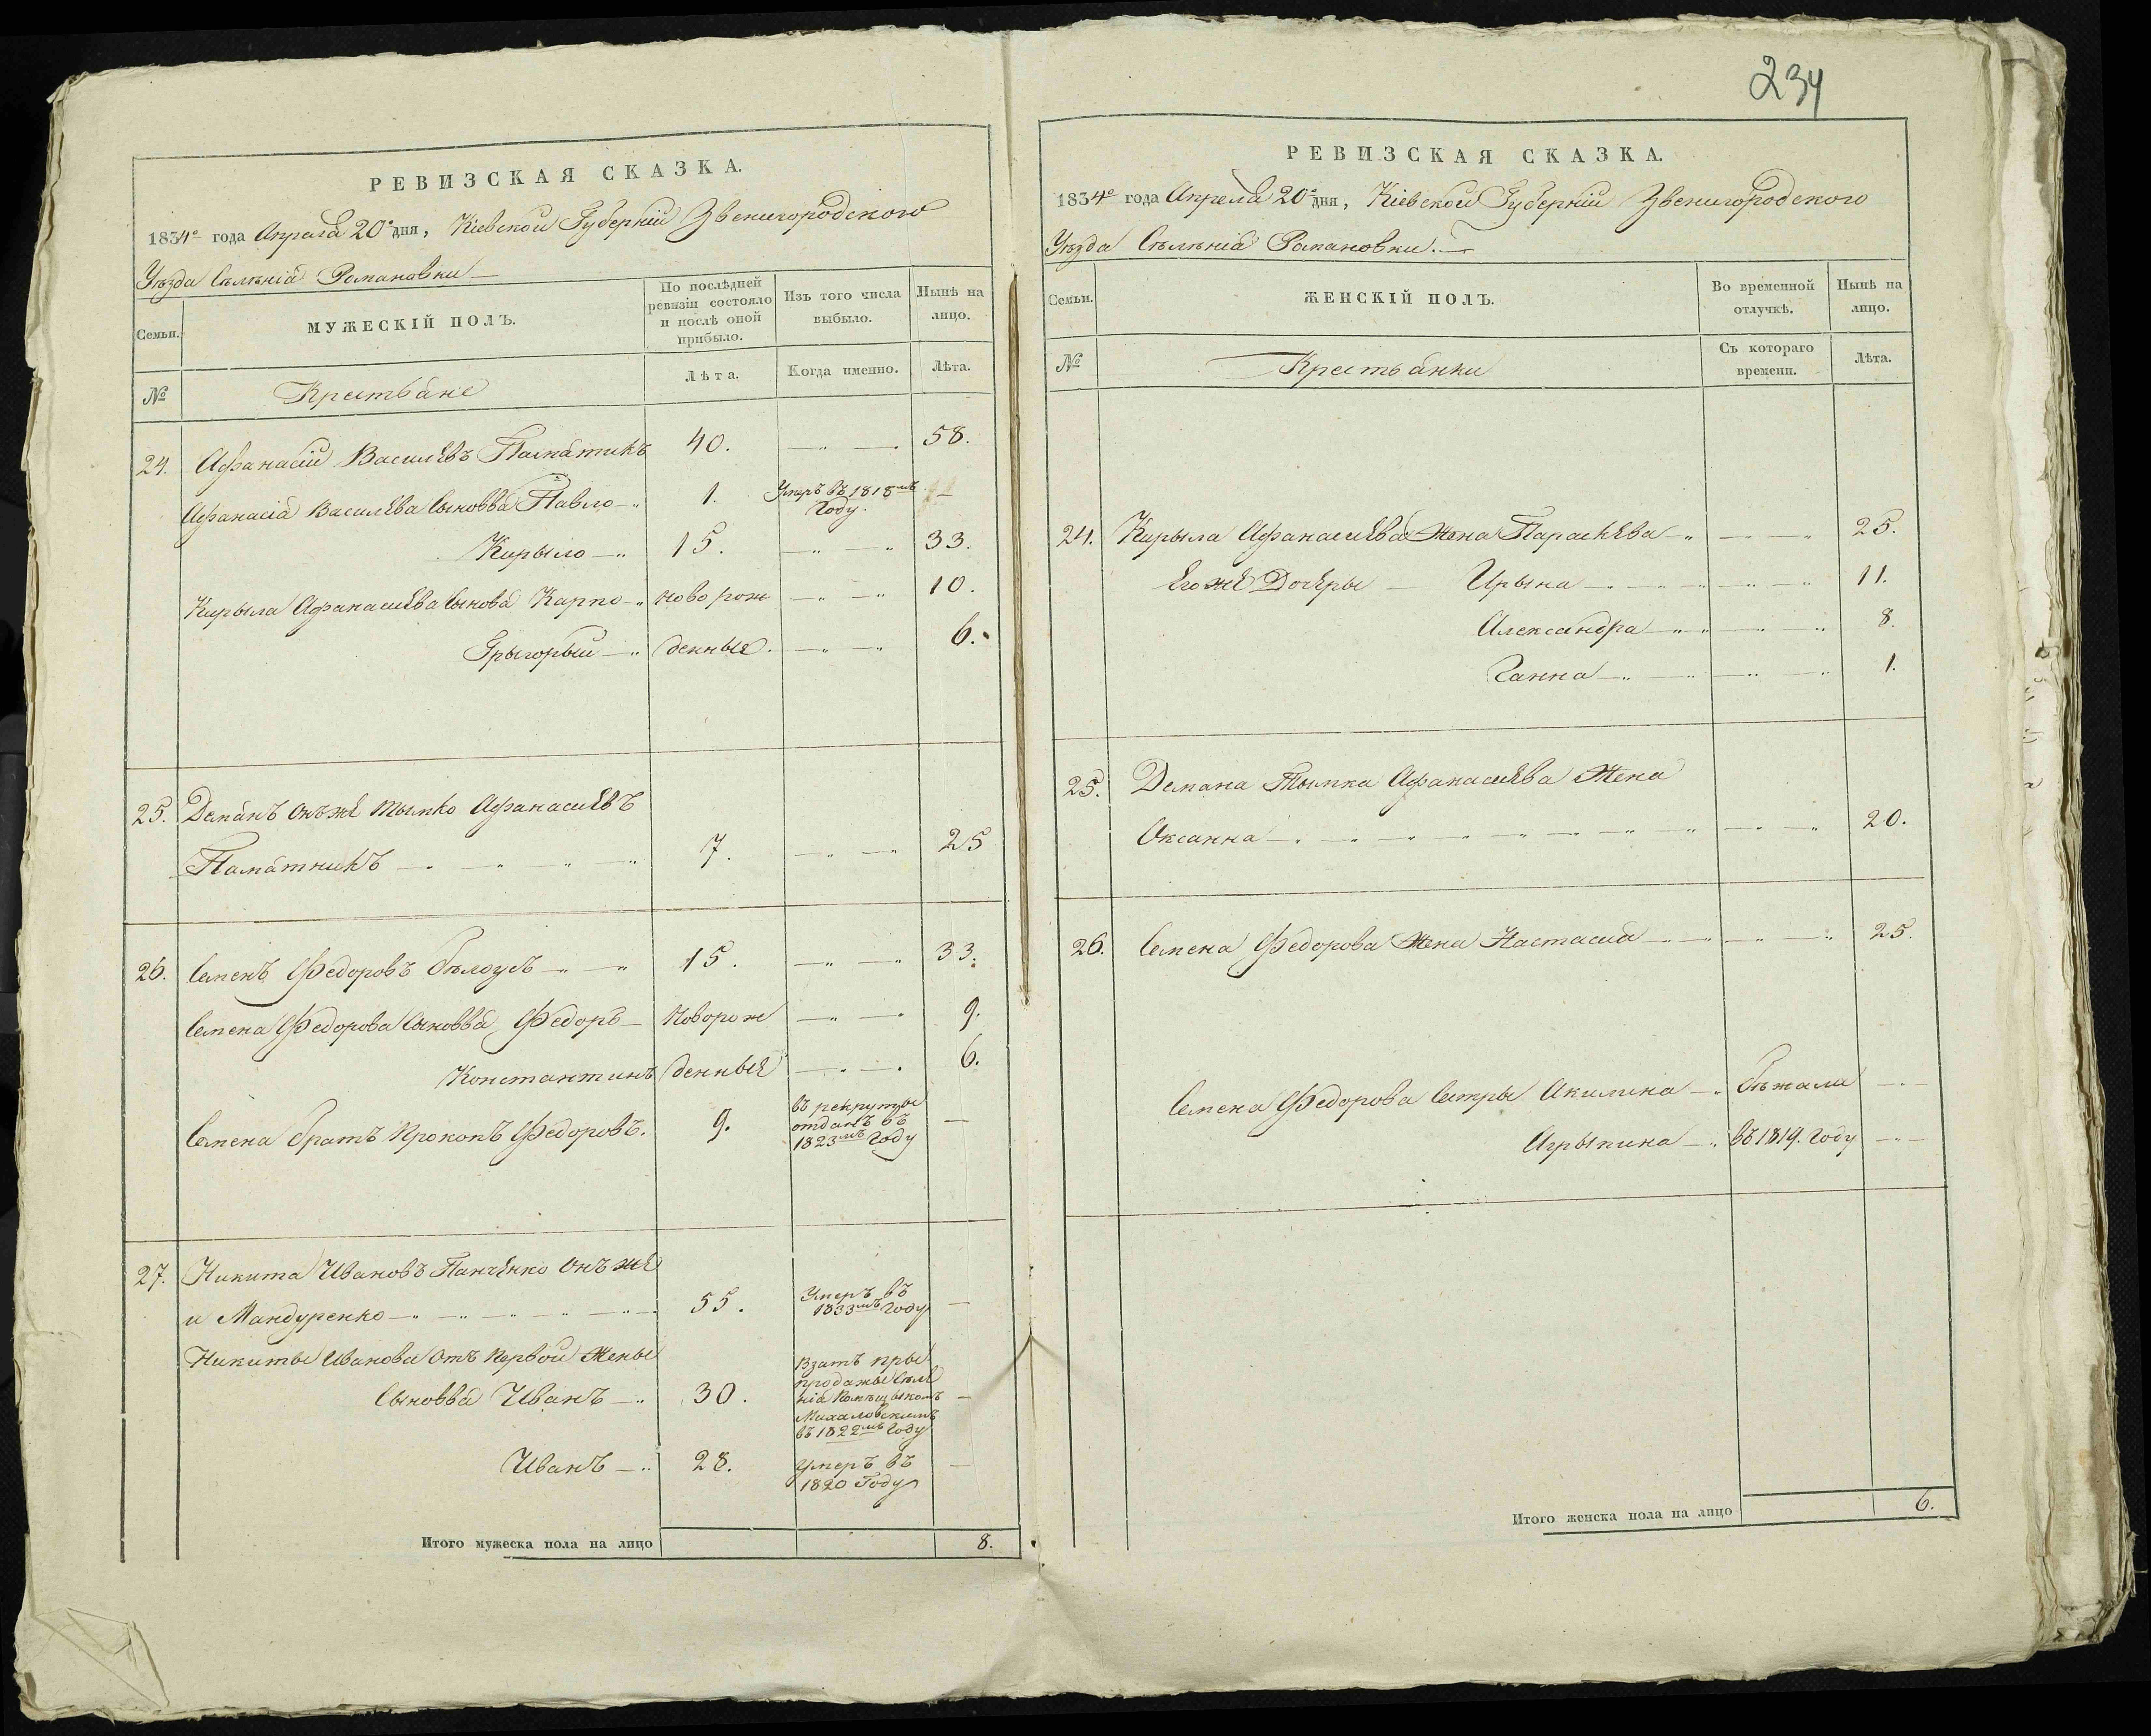 234
РЕВИЗСКАЯ СКАЗКА.
1834го года Апреля 20го дня, Кіевской Губерніи Звенигородского
Уѣзда Сѣлѣнія Романовки
Семьи.
МУЖЕСКІЙ ПОЛЪ.
По послѣдней
ревизіи состояло
и послѣ оной
прибыло.
Изъ того числа
выбыло.
Нынѣ на
лицо.
№
Крестьяне
Лѣта.
Когда именно.
Лѣта.
24. Афанасій Василевъ Памятникъ 40. 58.
Афанасія Василева Сыновья Павло 1. Умеръ въ 1818мъ
Году.
Кирыло 15. 33.
Кирыла Афанасиева Сыновя Карпо новорож 10.
Грыгорый денные. 6.
25. Демянъ онъже Тымко Афанасиевъ
Памятникъ 7. 25
26. Семенъ Федоровъ Бѣлоусъ 15. 33.
Семена Федорова Сыновья Федоръ Новорож 9.
Константинъ денные 6.
Семена братъ Прокопъ Федоровъ. 9. въ рекруты
отданъ въ
1823мъ Году
27. Никита Ивановъ Панченко Онъ же
и Мандуренко 55. Умеръ въ
1833мъ Году
Никиты Иванова отъ Первой Жены
Сыновья Иванъ 30. Взятъ пры
продажы Сѣлѣ
нія Помѣщыкомъ
Михаловскимъ
въ 1822мъ Году
Иванъ 28. Умеръ въ
1820 Году
Итого мужеска пола на лицо 8.
РЕВИЗСКАЯ СКАЗКА.
1834го года Апреля 20го дня, Кіевской Губерніи Звенигородского
Уѣзда Сѣлѣнія Романовки.
Семьи.
ЖЕНСКІЙ ПОЛЪ.
Во временной
отлучкѣ.
Нынѣ на
лицо.
№
Крестьянки
Съ котораго
времени.
Лѣта.
24. Кирыла Афанасиева Жена Параскева 25.
Его же Дочеры Ирына 11.
Александра 8.
Ганна 1.
25. Демяна Тымка Афанасиева Жена
Оксанна 20.
26. Семена Федорова Жена Настасия 25.
Семена Федорова Сестры Акилина бѣжали
Агрыпина въ 1819. Году
Итого женска пола на лицо 6.